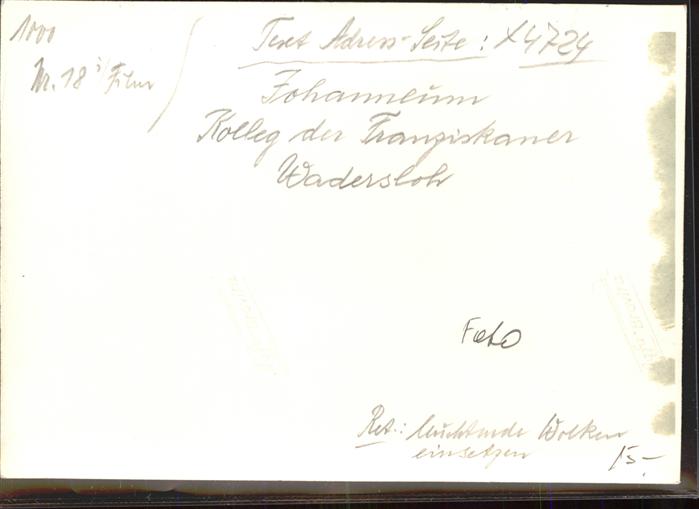 1000
Nr. 18 Film
Text Adress-Seite: X4724
Johanneum
Kolleg der Franziskaner
Wadersloh
Foto
Ret.: leuchtende Wolken
einsetzen
15,-